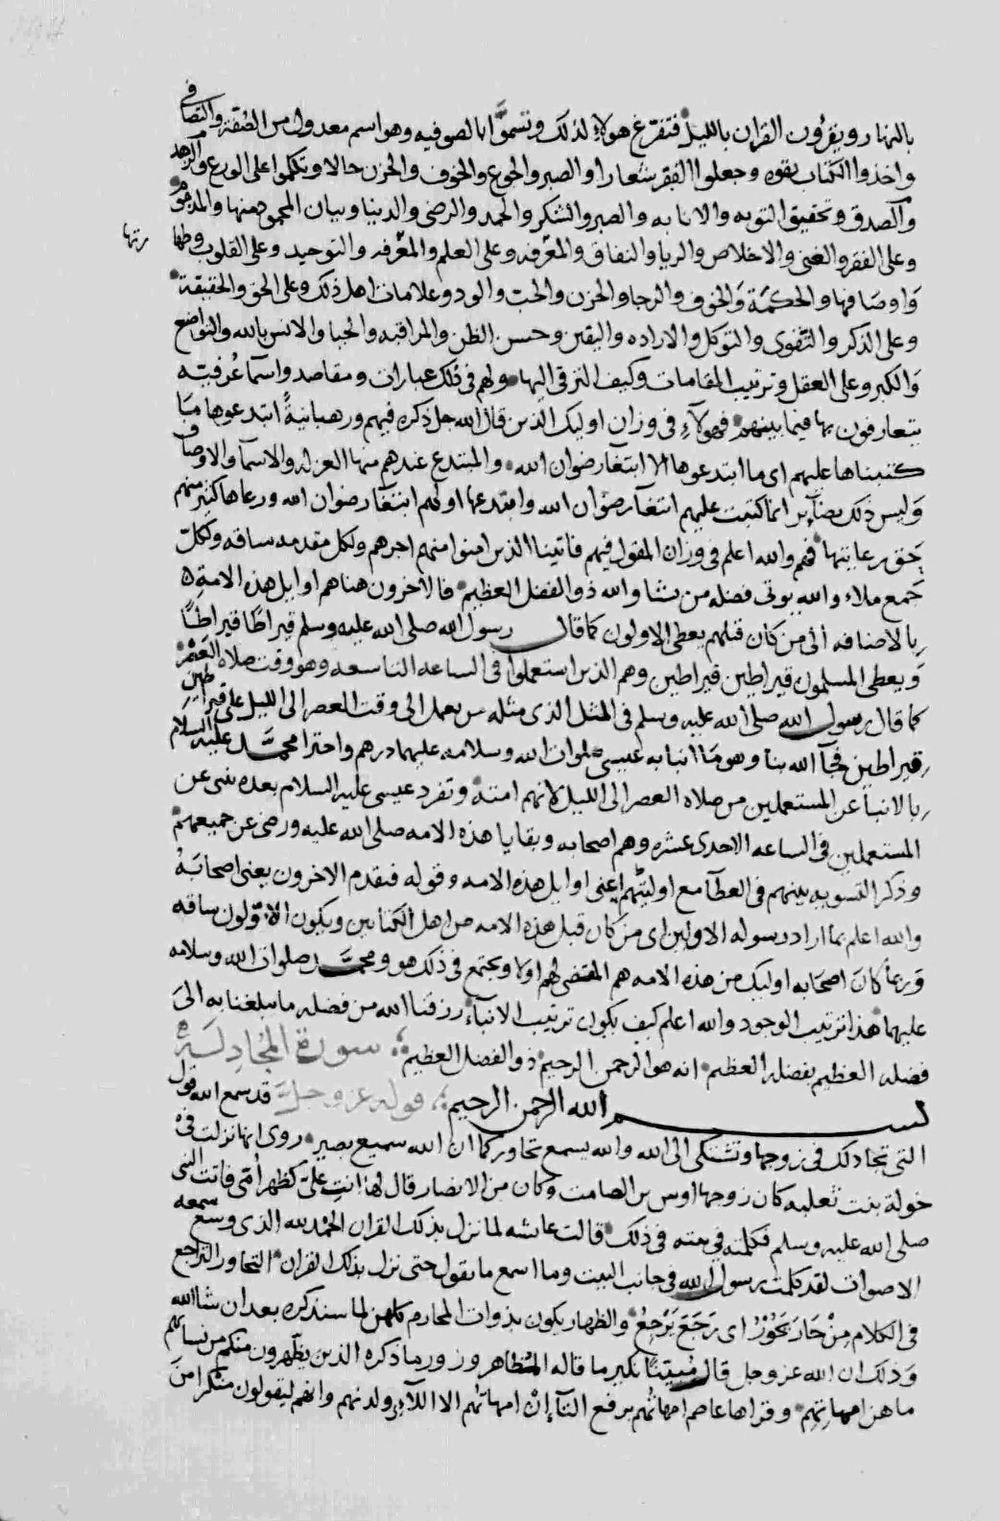 بالنهار ويقرؤون القران بالليل فتفرغ هولاء لذلك وتسموا بالصوفيه وهو اسم معدول من الصفة والتصافى
واخذوا الكتاب بقوه وجعلوا الفقر شعارا والصبر والجوع والخوف والحزن حالا وتكلموا على الورع والزهد
والصدق وتحقيق التوبه والانابه والصبر والشكر والحمد والرضى والدنيا وبيان المحمود منها والمذموم
وعلى الفقر والغنى والاخلاص والريا والنفاق والمعرفه وعلى العلم والمعرفه والتوحيد وعلى القلوب
واوصافها والحكمة والخوف والرجا والحزن والحب والود وعلامات اهل ذلك وعلى الحق والحقيقة
وعلى الذكر والتقوى والتوكل والاراده واليقين وحسن الظن والمراقبه والحيا والانس بالله والتواضع
والكبر وعلى العقل وترتيب المقامات وكيف الترقى اليها ولهم فى ذلك عبارات ومقاصد واسما عرفيه
يتعارفون بها فيما بينهم فهولاء فى وزان اوليك الذين قال الله جل ذكره فيهم ورهبانية ابتدعوها ما
كتبناها عليهم اى ما ابتدعوها الا ابتغا رضوان الله والمبتدع عندهم منها العزله والاسما والاوصاف
وليس ذلك بضاير انما كتبت عليهم ابتغا رضوان الله وابتدعها اولهم ابتغا رضوان الله ورعاها كثير منهم
حق رعايتها فهم والله اعلم فى وزان المقول فيهم فاتينا الذين امنوا منهم اجرهم ولكل مقدمه ساقه ولكل
جمع ملاء والله يوتى فضله من يشا والله ذو الفضل العظيم فالاخرون هنا هم اوايل هذه الامة
بالاضافه الى من كان قبلهم يعطى الاولون كما قال رسول الله صلى الله عليه وسلم قيراطا قيراطا
ويعطى المسلمون قيراطين قيراطين وهم الذين استعملوا فى الساعه التاسعه وهو وقت صلاه العصر
كما قال رسول الله صلى الله عليه وسلم فى المثل الذى مثله من يعمل الى وقت العصر الى الليل على قيراطين
قيراطين فجا الله بنا وهو ما انبا به عيسى صلوات الله وسلامه عليهما درهم واحترا محمد عليه السلام
بالانبا عن المستعملين من صلاه العصر الى الليل لانهم امته وتفرد عيسى عليه السلام بعده بشى عن
المستعملين فى الساعه الاحدى عشره وهم اصحابه وبقايا هذه الامه صلى الله عليه ورضى عن جميعهم
وذكر التسويه بينهم فى العطا مع اوليتهم اعنى اوايل هذه الامه وقوله فيقدم الاخرون يعنى اصحابه
والله اعلم بما اراد رسوله الاولين اى من كان قبل هذه الامه من اهل الكتابين ويكون الاولون ساقه
وربما كان اصحابه اوليك من هذه الامه هم المقضى لهم اولا ويجتمع فى ذلك هو ومحمد صلوات الله وسلامه
عليهما هذا ترتيب الوجود والله اعلم كيف يكون ترتيب الانباء رزقنا الله من فضله ما يبلغنا به الى
فضله العظيم بفضله العظيم انه هو الرحمن الرحيم ذو الفضل العظيم سورة المجادلة
بسم الله الرحمن الرحيم قوله عز وجل قد سمع الله قول
التى تجادلك فى زوجها وتشتكى الى الله والله يسمع تحاوركما ان الله سميع بصير روى انها نزلت فى
خولة بنت ثعلبه كان زوجها اوس بن الصامت وكان من الانصار قال لها انت على كظهر امى فاتت النبى
صلى الله عليه وسلم فكلمته فى بيته فى ذلك قالت عايشه لما نزل بذلك القران الحمد لله الذى وسع سمعه
الاصوات لقد كلمت رسول الله فى جانب البيت وما اسمع ما يقول حتى نزل بذلك القران التحاور التراجع
فى الكلام من حار يحور اى رجع يرجع والظهار يكون بذوات المحارم كلهن لما سنذكره بعد ان شا الله
وذلك ان الله عز وجل قال مبيتا نكير ما قاله المظاهر وزور ما ذكره الذين يظهرون منكم من نسائهم
ما هن امهاتهم وقراها عاصم امهاتهم برفع التا ان امهاتهم الا اللاءى ولدنهم وانهم ليقولون منكرا من